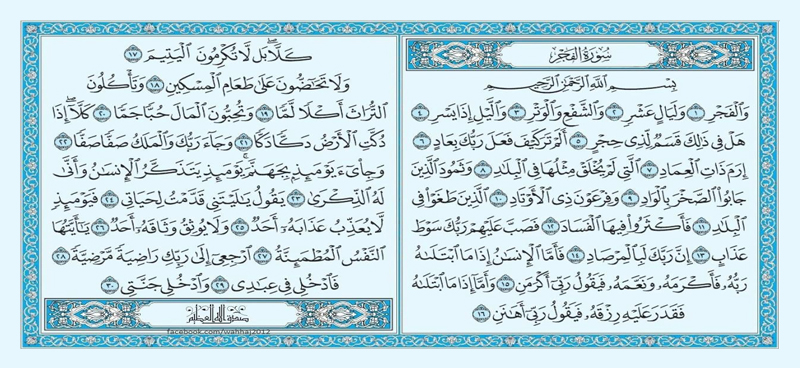 سُورَةُ الفَجْرِ
بِسْمِ ٱللَّهِ ٱلرَّحْمَٰنِ ٱلرَّحِيمِ
وَٱلْفَجْرِ ١ وَلَيَالٍ عَشْرٍ ٢ وَٱلشَّفْعِ وَٱلْوَتْرِ ٣ وَٱلَّيْلِ إِذَا يَسْرِ ٤
هَلْ فِي ذَٰلِكَ قَسَمٌ لِّذِي حِجْرٍ ٥ أَلَمْ تَرَ كَيْفَ فَعَلَ رَبُّكَ بِعَادٍ ٦
إِرَمَ ذَاتِ ٱلْعِمَادِ ٧ ٱلَّتِي لَمْ يُخْلَقْ مِثْلُهَا فِي ٱلْبِلَٰدِ ٨ وَثَمُودَ ٱلَّذِينَ
جَابُوا۟ ٱلصَّخْرَ بِٱلْوَادِ ٩ وَفِرْعَوْنَ ذِي ٱلْأَوْتَادِ ١٠ ٱلَّذِينَ طَغَوْا۟ فِي
ٱلْبِلَٰدِ ١١ فَأَكْثَرُوا۟ فِيهَا ٱلْفَسَادَ ١٢ فَصَبَّ عَلَيْهِمْ رَبُّكَ سَوْطَ
عَذَابٍ ١٣ إِنَّ رَبَّكَ لَبِٱلْمِرْصَادِ ١٤ فَأَمَّا ٱلْإِنسَٰنُ إِذَا مَا ٱبْتَلَىٰهُ
رَبُّهُۥ فَأَكْرَمَهُۥ وَنَعَّمَهُۥ فَيَقُولُ رَبِّي أَكْرَمَنِ ١٥ وَأَمَّا إِذَا مَا ٱبْتَلَىٰهُ
فَقَدَرَ عَلَيْهِ رِزْقَهُۥ فَيَقُولُ رَبِّي أَهَٰنَنِ ١٦
كَلَّا ۖ بَل لَّا تُكْرِمُونَ ٱلْيَتِيمَ ١٧
وَلَا تَحَٰٓضُّونَ عَلَىٰ طَعَامِ ٱلْمِسْكِينِ ١٨ وَتَأْكُلُونَ
ٱلتُّرَاثَ أَكْلًا لَّمًّا ١٩ وَتُحِبُّونَ ٱلْمَالَ حُبًّا جَمًّا ٢٠ كَلَّآ ۖ إِذَا
دُكَّتِ ٱلْأَرْضُ دَكًّا دَكًّا ٢١ وَجَآءَ رَبُّكَ وَٱلْمَلَكُ صَفًّا صَفًّا ٢٢
وَجِا۟يٓءَ يَوْمَئِذٍۭ بِجَهَنَّمَ ۚ يَوْمَئِذٍ يَتَذَكَّرُ ٱلْإِنسَٰنُ وَأَنَّىٰ
لَهُ ٱلذِّكْرَىٰ ٢٣ يَقُولُ يَٰلَيْتَنِي قَدَّمْتُ لِحَيَاتِي ٢٤ فَيَوْمَئِذٍ
لَّا يُعَذِّبُ عَذَابَهُۥٓ أَحَدٌ ٢٥ وَلَا يُوثِقُ وَثَاقَهُۥٓ أَحَدٌ ٢٦ يَٰٓأَيَّتُهَا
ٱلنَّفْسُ ٱلْمُطْمَئِنَّةُ ٢٧ ٱرْجِعِيٓ إِلَىٰ رَبِّكِ رَاضِيَةً مَّرْضِيَّةً ٢٨
فَٱدْخُلِي فِي عِبَٰدِي ٢٩ وَٱدْخُلِي جَنَّتِي ٣٠
صدق الله العظيم
facebook.com/wahhaj2012